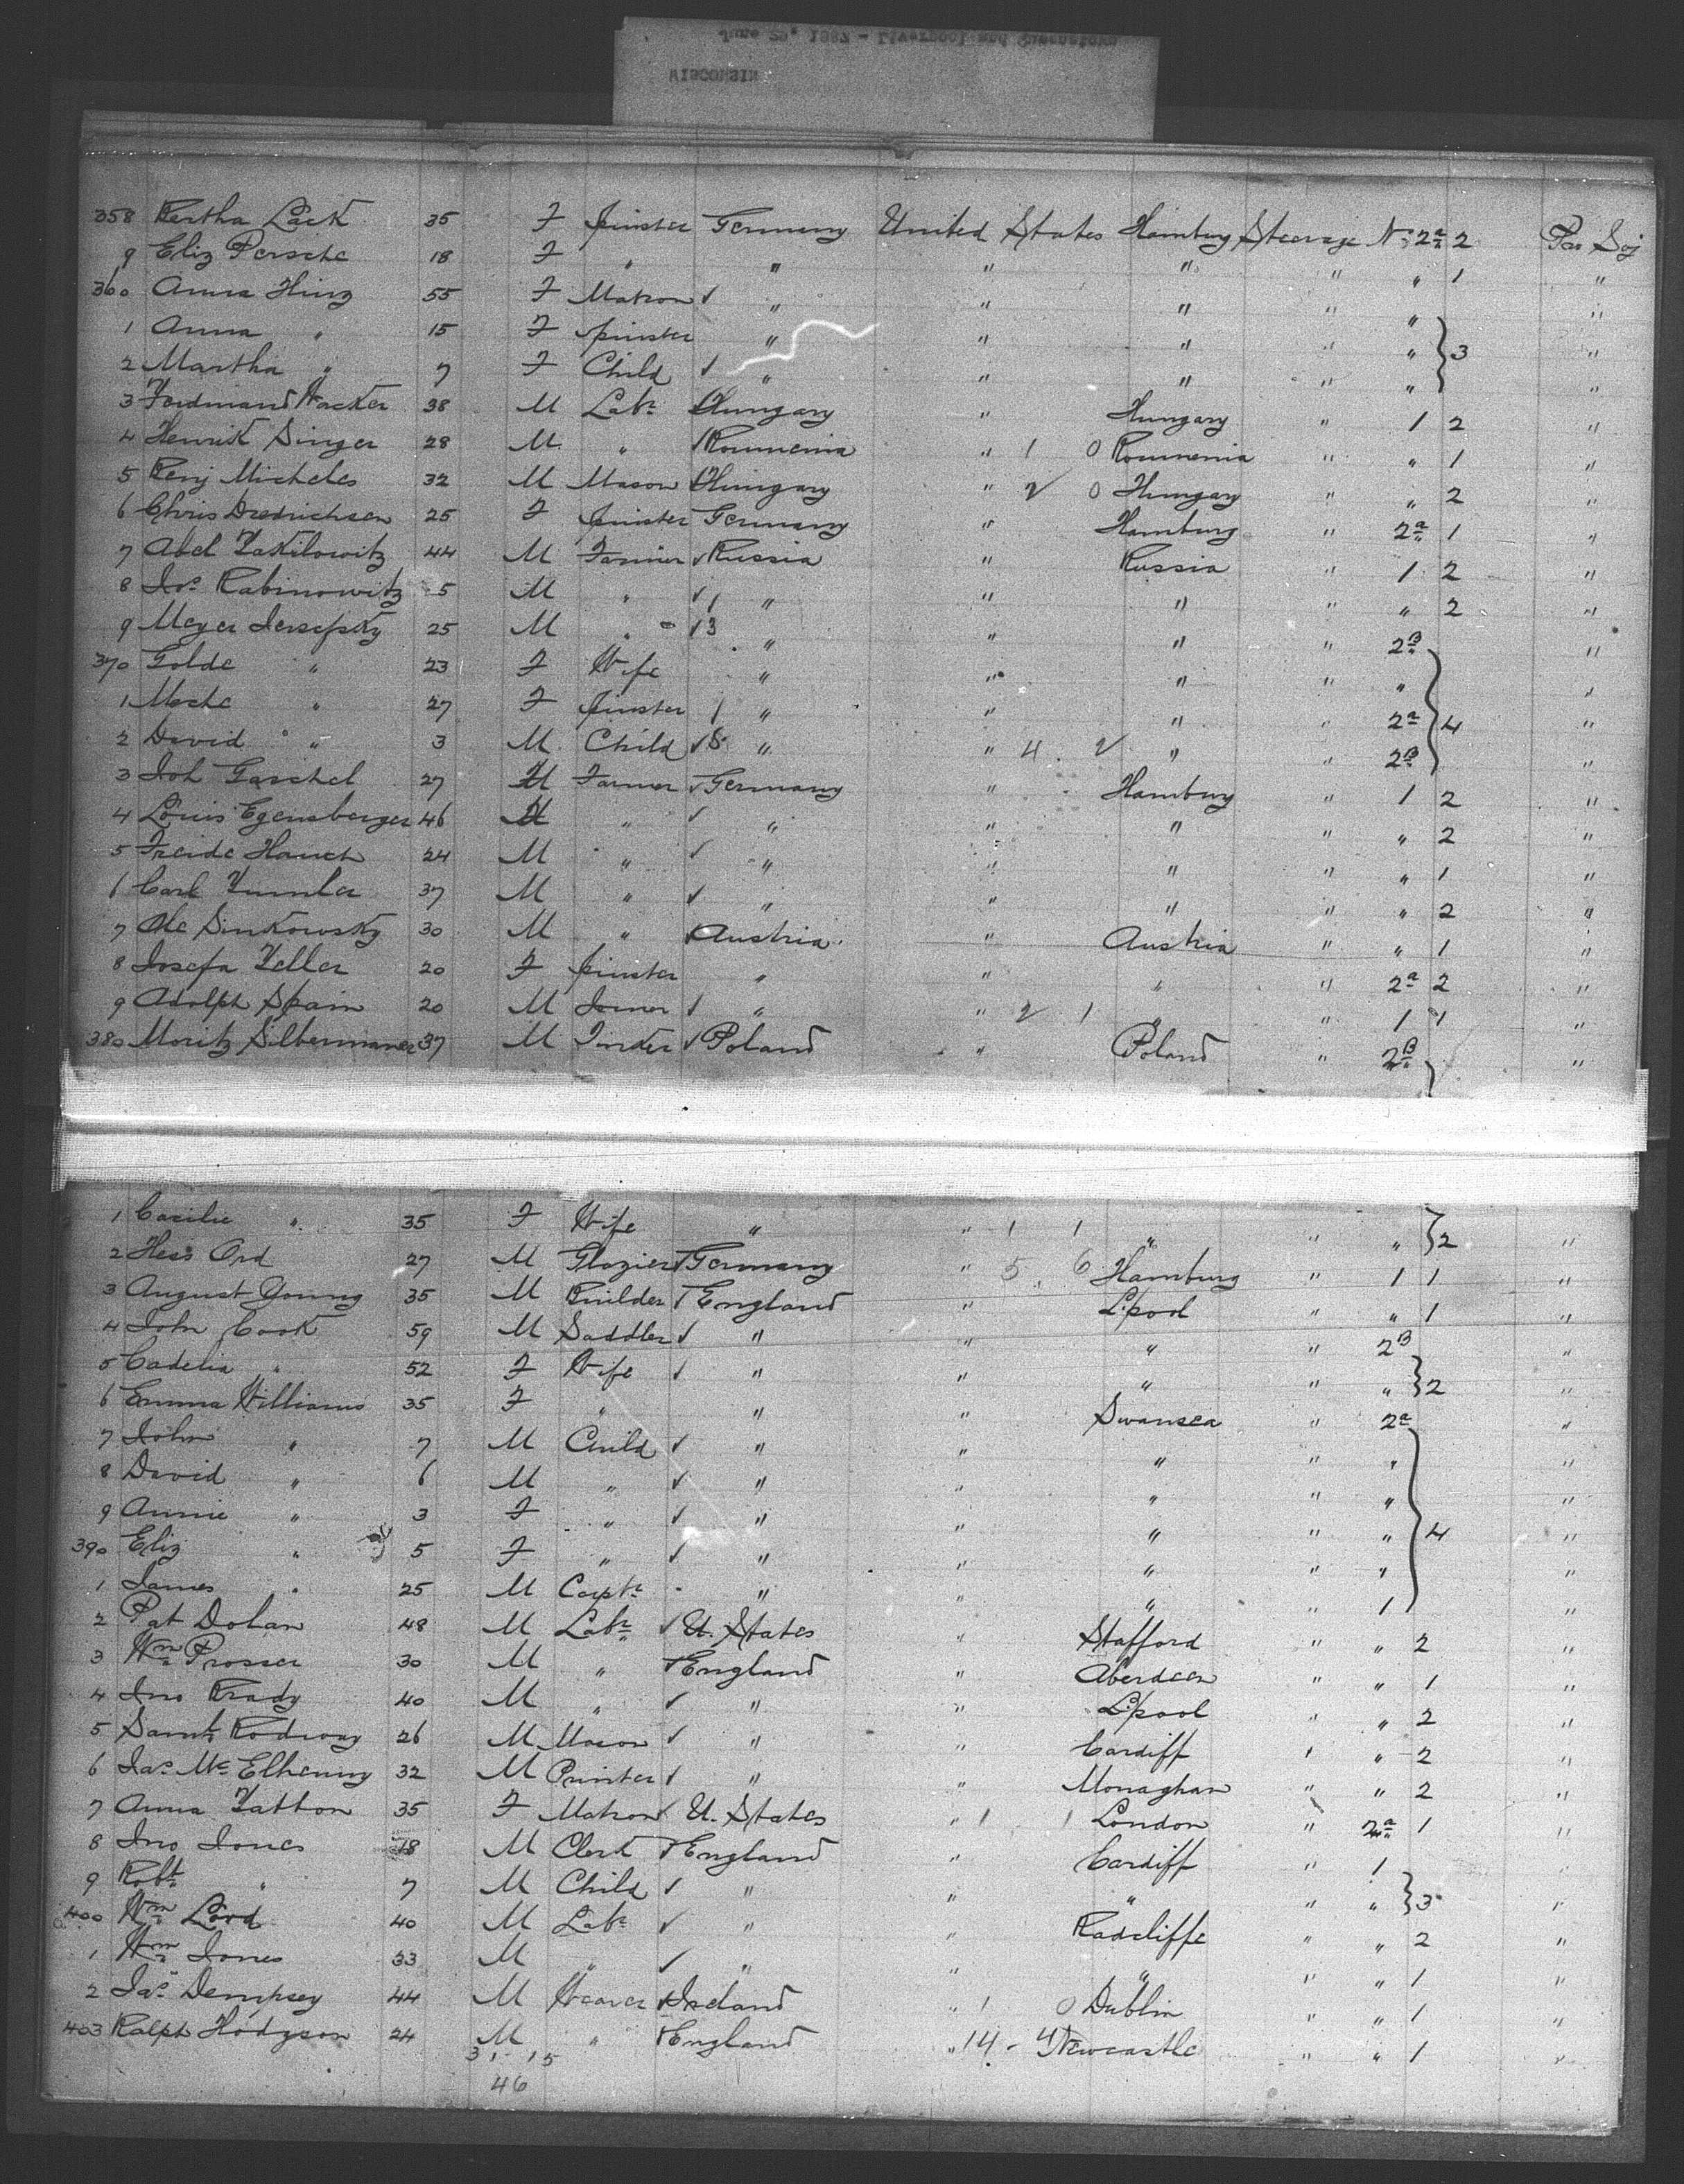 June 29, 1887 - Liverpool and Queenstown
WISCONSIN
358 Bertha Lack 35 F Spinster Germany United States Hamburg Steerage No 2a 2 Par Soj
9 Eliz Persche 18 F " " " " " " 1 "
360 Anna Hinz 55 F Matron ✓ " " " " " "
1 Anna " 15 F Spinster " " " " " "
2 Martha " 7 F Child ✓ " " " " " } 3 "
3 Ferdinand Wacker 38 M Labr Hungary " Hungary " 1 2 "
4 Henrik Singer 28 M " ✓ Roumenia " 1 0 Roumenia " " 1 "
5 Benj Micheles 32 M Mason Hungary " 2 0 Hungary " " 2 "
6 Chris Dredrichsen 25 F Spinster Germany " Hamburg " 2a 1 "
7 Abel 44 M Farmer ✓ Russia " Russia " 1 2 "
8 Jos Rabinowitz 5 M " ✓ 1 " " " " " 2 "
9 Meyer 25 M " ✓ 3 " " " " 2B "
370 Golde " 23 F Wife " " " " " "
1 " 27 F Spinster 1 " " " " 2a } 4 "
2 David " 3 M Child ✓ " " 4 2 " " 2B "
3 Joh Garchel 27 M Farmer ✓ Germany " Hamburg " 1 2 "
4 Louis Egensberger 46 M " ✓ " " " " " 2 "
5 Freide Hauch 24 M " ✓ " " " " " 1 "
6 Carl 37 M " ✓ " " " " " 2 "
7 Sinkowsky 30 M " ✓ Austria " Austria " " 1 "
8 Josefa Zeller 20 F Spinster " " " " 2a 2 "
9 Adolph Spain 20 M Joiner ✓ " " 2 1 " " 1 1 "
380 Moritz Silbermann 37 M ✓ Poland " Poland " 2B "
1 Cacilie " 35 F Wife " " 1 1 " " " } 2 "
2 Hess Ord 27 M Glazier ✓ Germany " 5 6 Hamburg " 1 1 "
3 August Young 35 M Builder ✓ England " L'pool " " 1 "
4 John Cook 59 M Saddler ✓ " " " " 2B "
5 Cadelia " 52 F Wife ✓ " " " " " } 2 "
6 Emma Williams 35 F " " " Swansea " 2a "
7 John " 7 M Child ✓ " " " " " "
8 David " 6 M " ✓ " " " " " "
9 Annie " 3 F " ✓ " " " " " } 4 "
390 Eliz " 5 F " ✓ " " " " " "
1 James " 25 M Carptr " " " " 1 "
2 Pat Dolan 48 M Labr ✓ U. States " Stafford " " 2 "
3 Wm Prosser 30 M " ✓ England " Aberdeen " " 1 "
4 Jno Brady 40 M " ✓ " " L'pool " " 2 "
5 Saml Rodway 26 M Mason ✓ " " Cardiff " " 2 "
6 Jas McElhenny 32 M Printer ✓ " " Monaghan " " 2 "
7 Anna Tatton 35 F Matron ✓ U. States " 1 1 London " 2a 1 "
8 Jno Jones 18 M Clerk ✓ England " Cardiff " 1 "
9 Robt " 7 M Child ✓ " " " " " } 3 "
400 Wm Lord 40 M Labr ✓ " " Radcliffe " " 2 "
1 Wm Jones 33 M " ✓ " " " " " 1 "
2 Jas Dempsey 44 M Weaver ✓ Ireland " 1 0 Dublin " " 1 "
403 Ralph Hodgson 24 M " ✓ England " 14 - 4 Newcastle " " 1 "
31 - 15
46